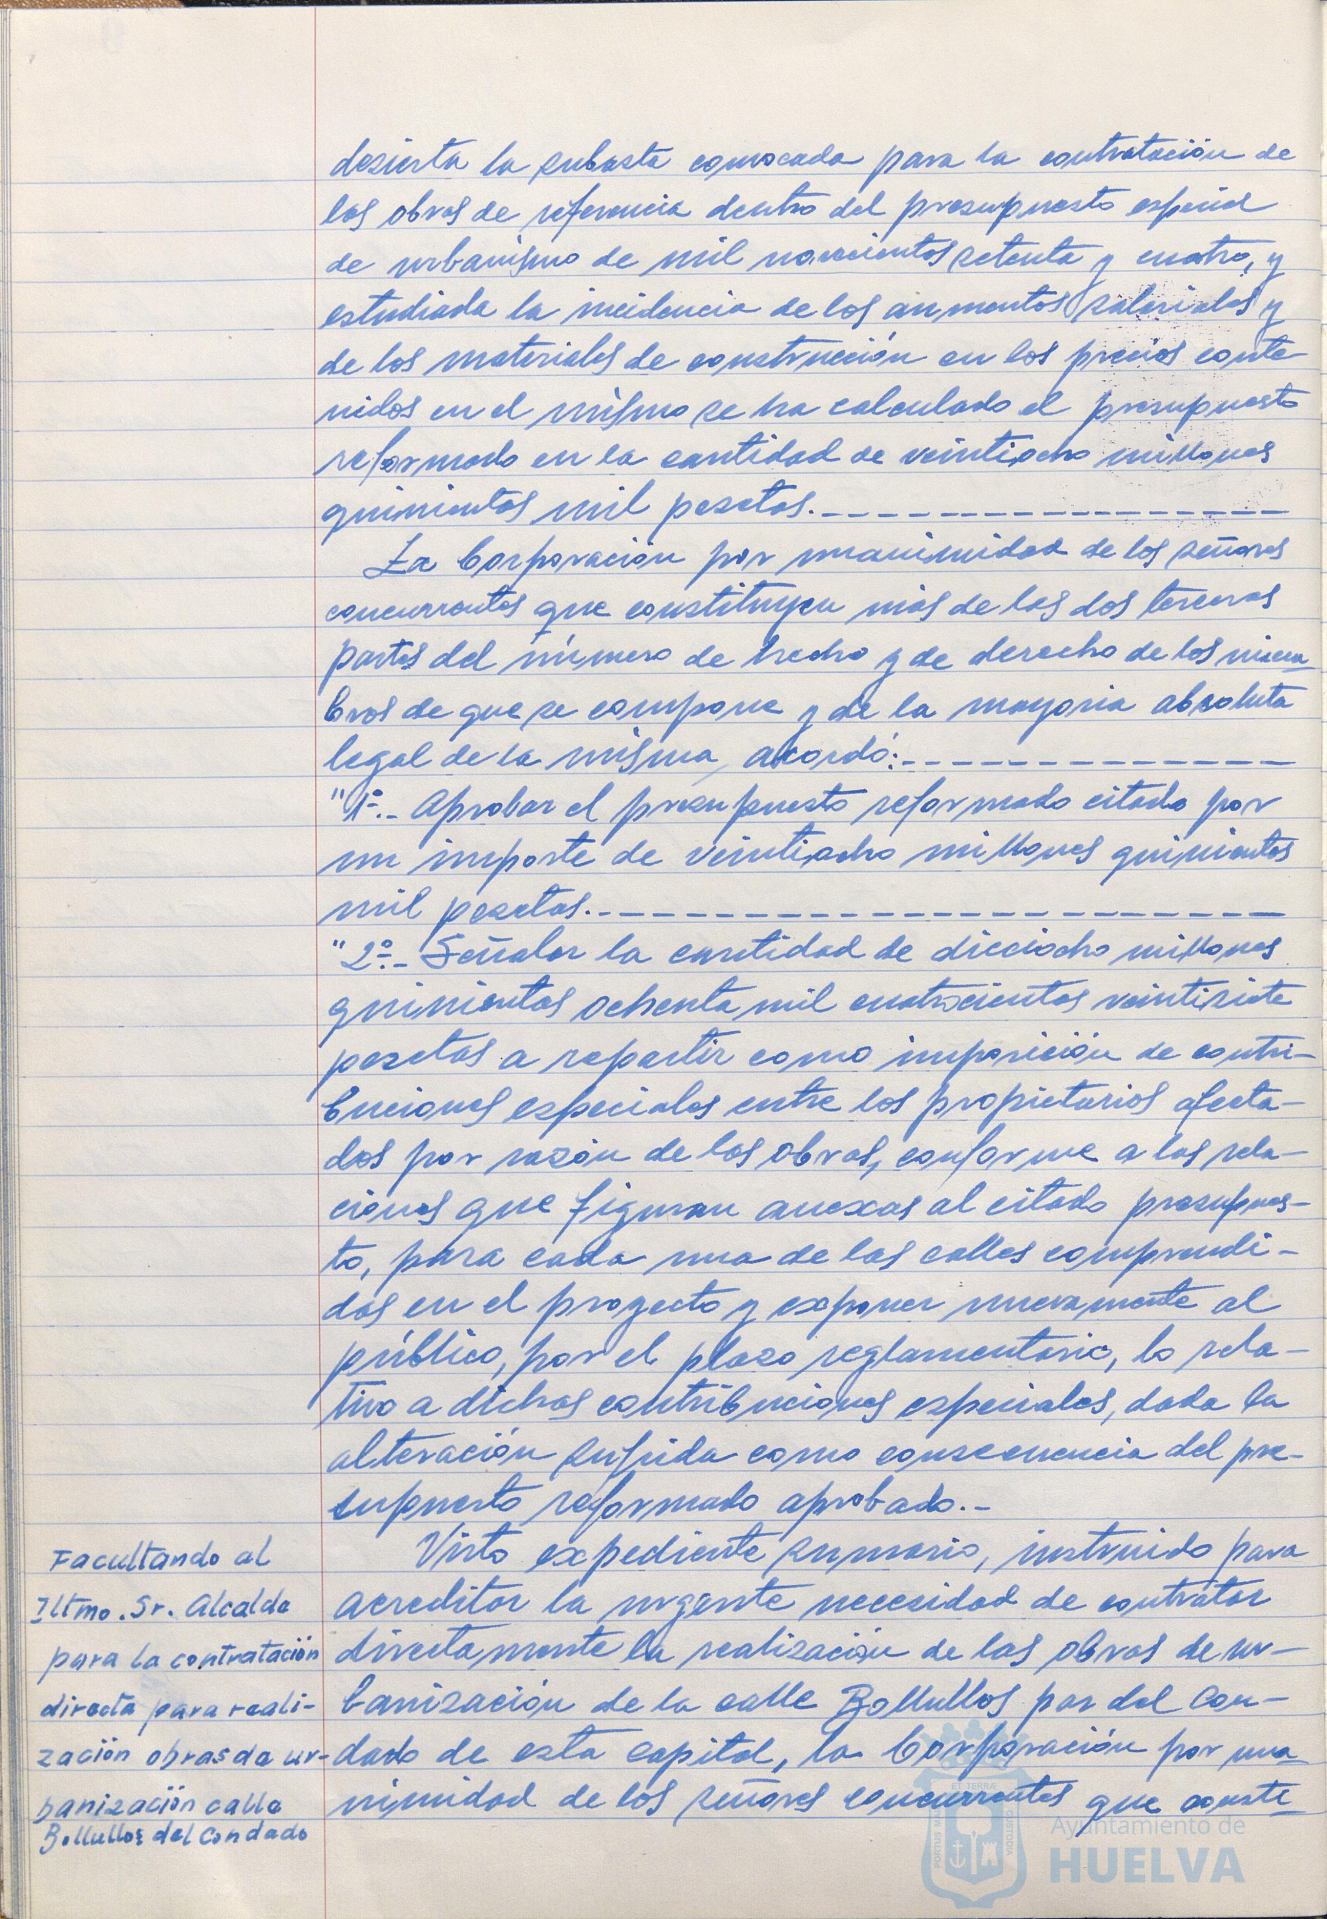 desierta la subasta convocada para la contratación de
las obras de referencia dentro del presupuesto especial
de urbanismo de mil novecientos setenta y cuatro, y
estudiada la incidencia de los aumentos salariales y
de los materiales de construcción en los precios conte-
nidos en el mismo se ha calculado el presupuesto
reformado en la cantidad de veintiocho millones
quinientas mil pesetas.
La Corporación por unanimidad de los señores
concurrentes que constituyen más de las dos terceras
partes del número de hecho y de derecho de los miem-
bros de que se compone y de la mayoria absoluta
legal de la misma, acordó:
"1º.- Aprobar el presupuesto reformado citado por
un importe de veintiocho millones quinientas
mil pesetas.
"2º.- Señalar la cantidad de dieciocho millones
quinientas ochenta mil cuatrocientas veintisiete
pesetas a repartir como imposición de contri-
buciones especiales entre los propietarios afecta-
dos por razón de las obras, conforme a las rela-
ciones que figuran anexas al citado presupues-
to, para cada una de las calles comprendi-
das en el proyecto y exponer nuevamente al
público, por el plazo reglamentario, lo rela-
tivo a dichas contribuciones especiales, dada la
alteración sufrida como consecuencia del pre-
supuesto reformado aprobado.-
Facultando al
Iltmo. Sr. Alcalde
para la contratación
directa para reali-
zación obras de ur-
banización calle
Bollullos del Condado
Visto expediente sumario, instruido para
acreditar la urgente necesidad de contratar
directamente la realización de las obras de ur-
banización de la calle Bollullos par del Con-
dado de esta capital, la Corporación por una-
nimidad de los señores concurrentes que conste-
ET TERRÆ
PORTUS MARIS
CUSTODIA
Ayuntamiento de
HUELVA